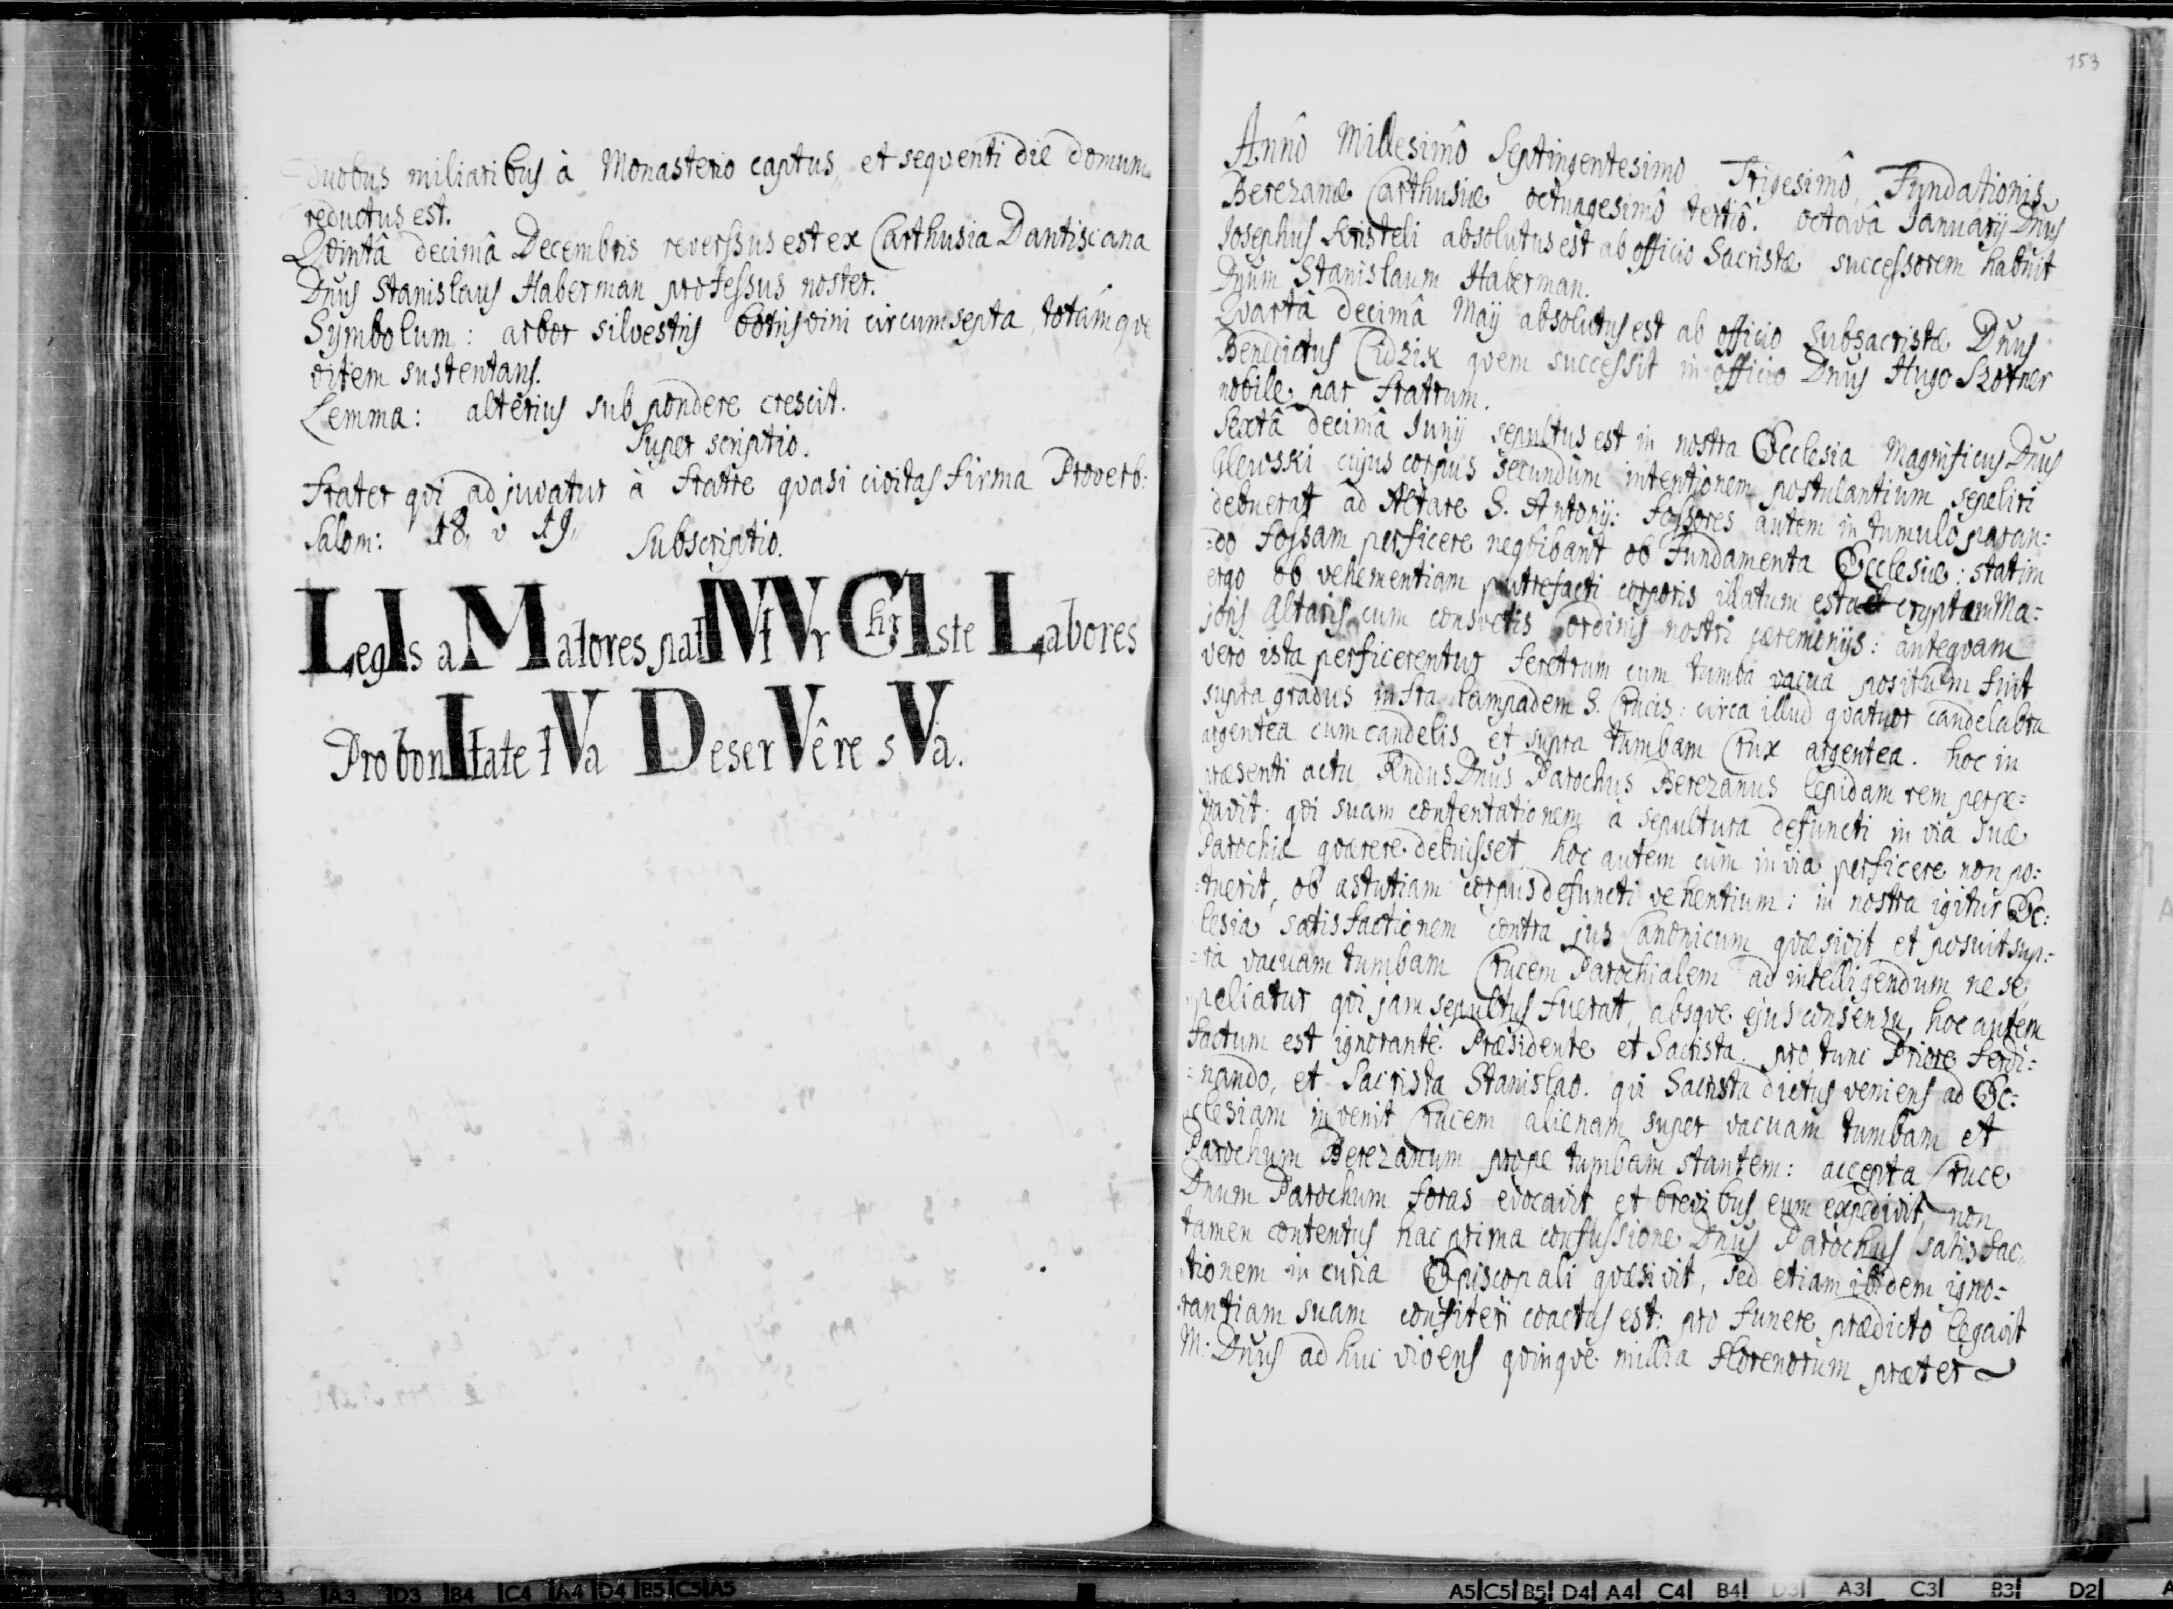 duobus miliaribus à Monasterio captus, et sequenti die domum
reductus est.
Qvintâ decimâ Decembris reverssus est ex Carthusia Dantiscana
Dnus Stanislaus Haberman professus noster.
Symbolum: arbor silvestris botris vini circumsepta, totamqve
vitem sustentans.
Lemma: alterius sub pondere crescit.
Super scriptio.
Frater qvi adjuvatur à fratre quasi civitas firma Proverb:
Salom: 18. v 19.
Subscriptio.
LegIs aMatores patIVntVr ChrIste Labores
Pro bonItate tVa DeserVêre sVa.
153
Annô Millesimô Septingentesimo Trigesimô, Fundationis
Berezanæ Carthusiæ octuagesimô tertiô. octavâ Januarij Dnus
Josephus Kristeli absolutus est ab officio Sacristæ successorem habuit
Dnum Stanislaum Haberman.
Qvartâ decimâ Maij absolutus est ab officio Subsacristæ Dnus
Benedictus Cidzik qvem successit in officio Dnus Hugo Kotner
nobile par fratrum.
Sextâ decimâ Junij sepultus est in nostra Ecclesia Magnificus Dnus
cujus corpus secundum intentionem postulantium sepeliri
debuerat ad Altare S. Antonij: fossores autem in tumulo paran:
=do fossam perficere neqvibant ob Fundamenta Ecclesiæ: statim
ergo ob vehementiam putrefacti corporis illatum est ad cryptam Ma:
joris Altaris cum consvetis ordinis nostri cæremonijs: anteqvam
vero ista perficerentur feretrum cum tumba vacua positum fuit
supra gradus infra lampadem S. Crucis: circa illud qvatuor candelabra
argentea cum candelis et supra tumbam Crux argentea. hoc in
præsenti actu Rndus Dnus Parochus Berezanus lepidam rem perpe:
travit: qvi suam contentationem à sepultura defuncti in via suæ
Parochiæ qværere debuisset, hoc autem cum in via perficere non po:
=tuerit, ob astutiam corpus defuncti vehentium: in nostra igitur Ec:
lesia satisfactionem contra jus Canonicum qvæsivit et posuit sup:
=ra vacuam tumbam Crucem Parochialem ad intelligendum ne se
peliatur qvi jam sepultus fuerat, absqve ejus consensu, hoc autem
factum est ignorante Præsidente et Sacrista. pro tunc Priore Ferdi:
=nando, et Sacrista Stanislao. qvi Sacrista dictus veniens ad Ec:
clesiam invenit Crucem alienam super vacuam tumbam et
Parochum Berezanum prope tumbam stantem: accepta Cruce
Dnum Parochum foras evocavit, et brevibus eum expedivit, non
tamen contentus hac prima confussione Dnus Parochus satisfac
tionem in curia Episcopali qvæsivit, sed etiam ibidem igno:
rantiam suam confiteri coactus est: pro funere prædicto legavit
M. Dnus ad huc vivens qvinqve millia florenorum præter